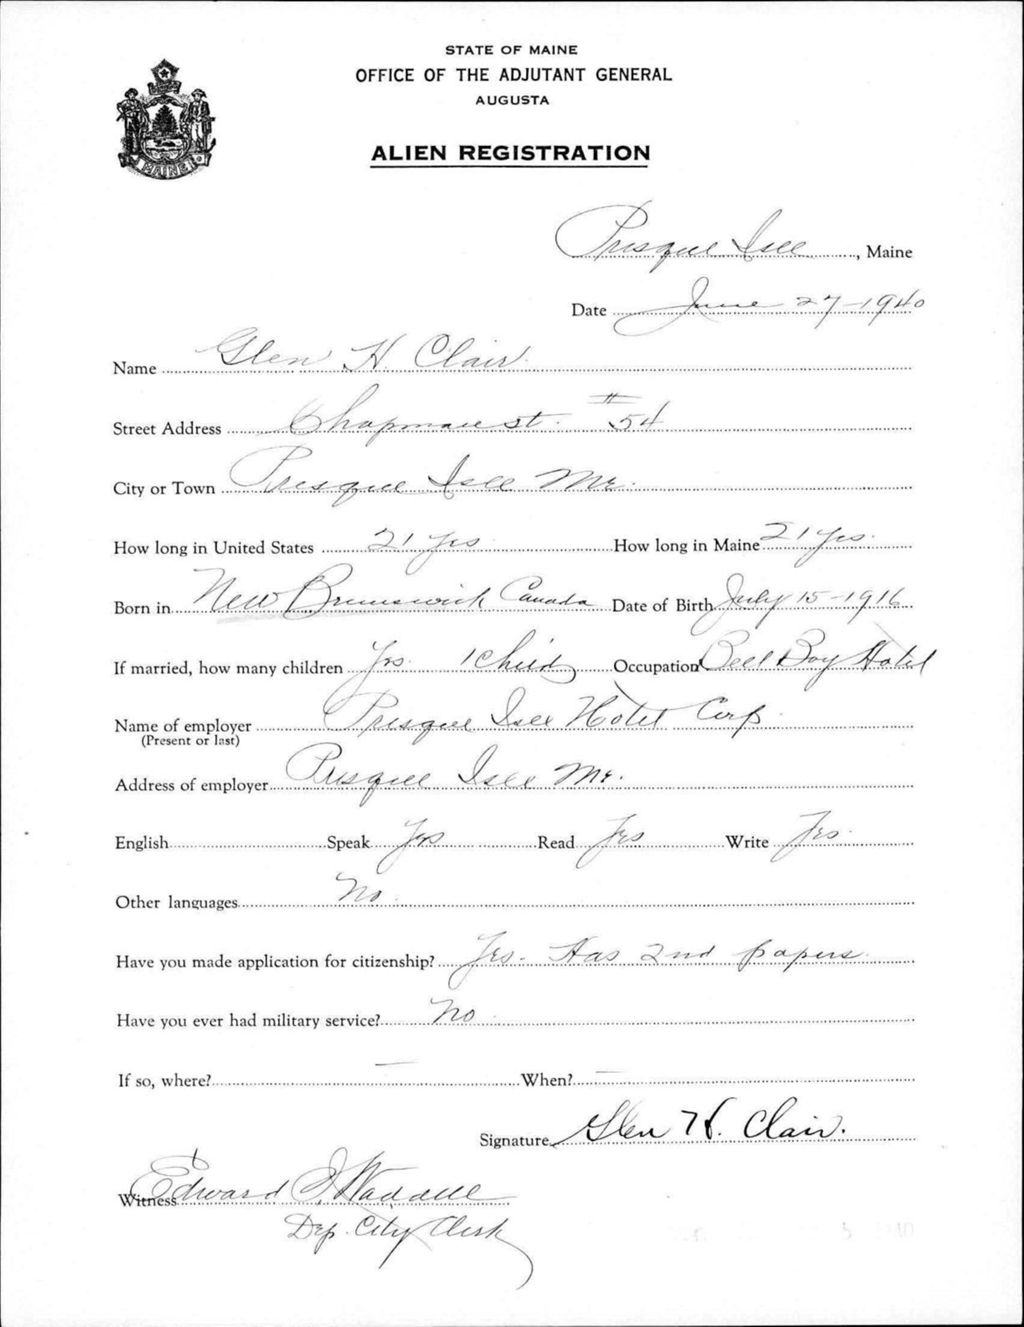 STATE OF MAINE
OFFICE OF THE ADJUTANT GENERAL
AUGUSTA
ALIEN REGISTRATION
MAINE
Presque Isle, Maine
Date June 27-1940
Name Glen H. Clair.
Street Address Chapman st. # 54
City or Town Presque Isle Me.
How long in United States 21 yrs How long in Maine 21 yrs.
Born in New Brunswick Canada Date of Birth July 15-1916
If married, how many children Yes. 1 child Occupation Bell Boy Hotel
Name of employer Presque Isle Hotel Corp.
(Present or last)
Address of employer Presque Isle Me.
English Speak Yes Read Yes Write Yes.
Other languages No.
Have you made application for citizenship? Yes- Has 2nd papers
Have you ever had military service? No
If so, where? — When? —
Signature Glen H. Clair.
Witness Edward J. Waddell
Dep. City Clerk